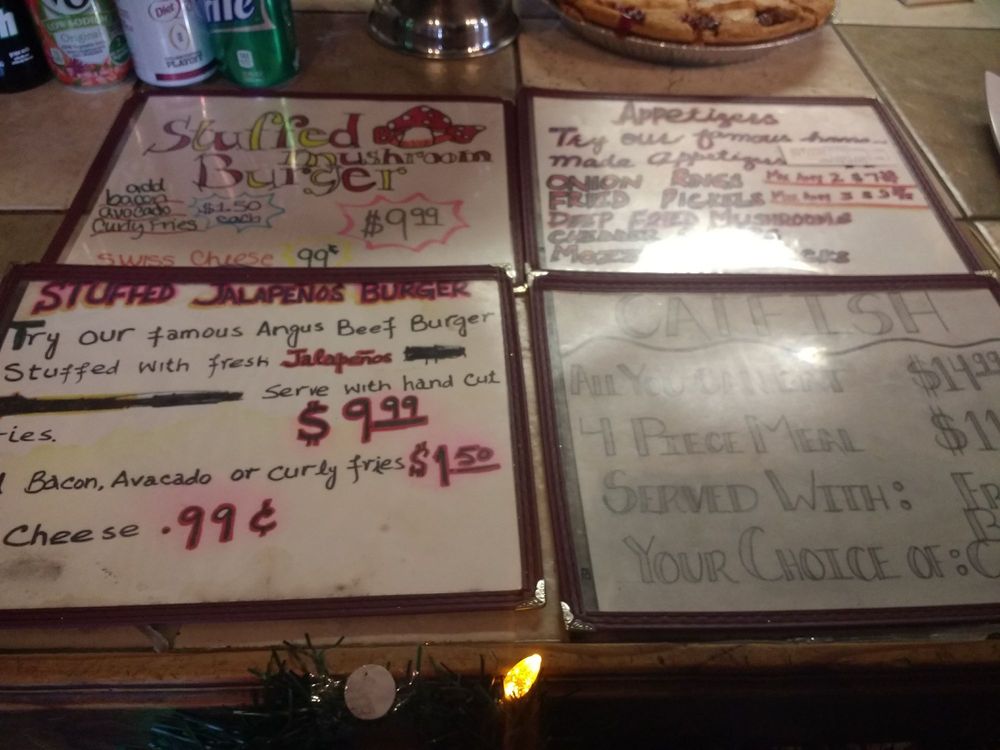 V8
LOW SODIUM
Original
Diet
PLAYOFF
Stuffed
mushroom
Burger
add
bacon
avocado
Curly Fries
$1.50
each
$9.99
Swiss Cheese 99¢
Appetizers
Try our famous home
made Appetizers
ONION RINGS Mix Any 2 $
FRIED PICKELS Mix Any 3 $
DEEP FRIED MUSHROOMS
STUFFED JALAPEÑOS BURGER
Try our famous Angus Beef Burger
Stuffed with fresh Jalapeños
Serve with hand cut
ries.
$9.99
Bacon, Avacado or curly fries $1.50
Cheese .99¢
CATFISH
ALL YOU CAN EAT $14.99
4 PIECE MEAL $11
SERVED WITH: FR
YOUR CHOICE OF: C